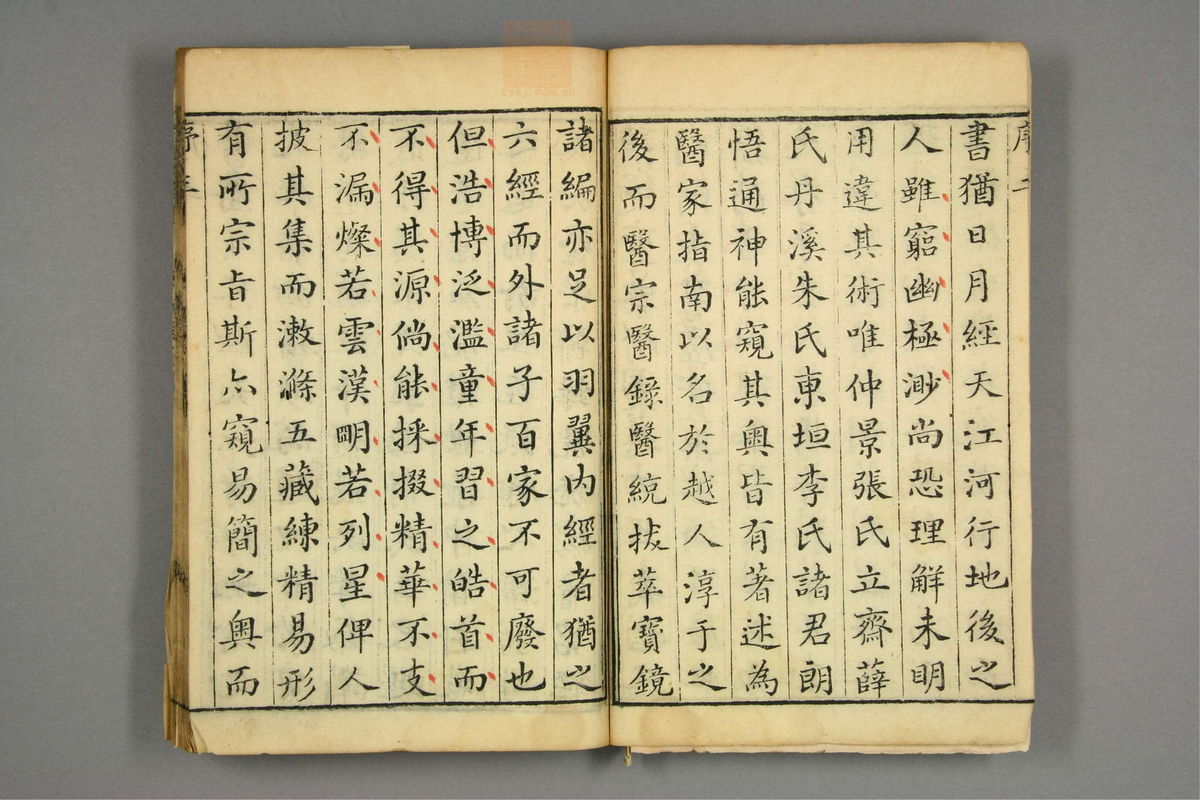 序 二
書猶日月經天江河行地後之
人雖窮幽極渺尚恐理解未明
用違其術唯仲景張氏立齋薛
氏丹溪朱氏東垣李氏諸君朗
悟通神能窺其奧皆有著述為
醫家指南以名於越人淳于之
後而醫宗醫錄醫統拔萃寶鏡
諸編亦足以羽翼内經者猶之
六經而外諸子百家不可廢也
但浩博泛濫童年習之皓首而
不得其源倘能採掇精華不支
不漏燦若雲漢明若列星俾人
披其集而漱滌五藏練精易形
有所宗旨斯亦窺易簡之奧而
序 三